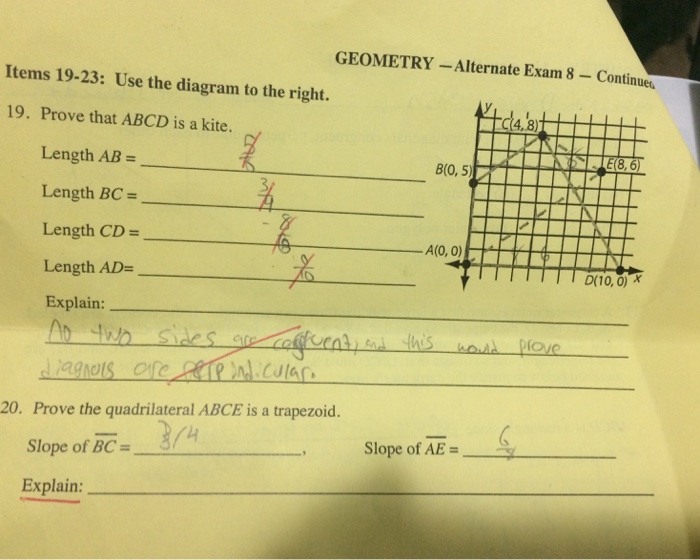 GEOMETRY — Alternate Exam 8 — Continued
Items 19-23: Use the diagram to the right.
19. Prove that ABCD is a kite.
Length AB =
Length BC = 3/4
Length CD = - 8/6
Length AD= 0/10
Explain:
No two sides are congruent, and this would prove
diagnols are perpindicular.
y
C(4, 8)
B(0, 5)
E(8, 6)
A(0, 0)
D(10, 0)
x
20. Prove the quadrilateral ABCE is a trapezoid.
Slope of BC = 3/4
Slope of AE = 6/8
Explain: